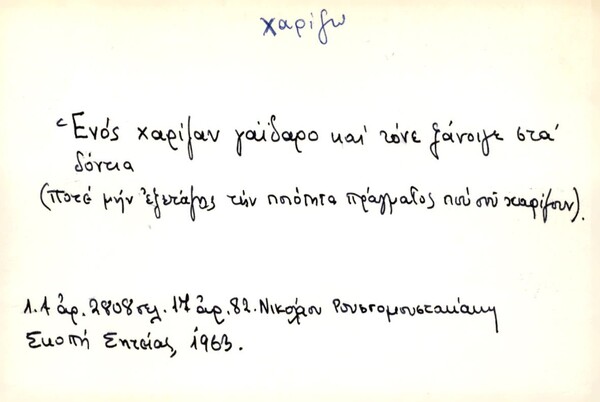 χαρίζω
Ἑνός χαρίζαν γαϊδαρο καί τόνε ξάνοιγε στά
δόντια
(ποτέ μήν ἐξετάζης τήν ποιότητα πράγματος πού σοῦ χαρίζουν).
Λ.Α ἀρ. 2808 σελ. 17 ἀρ. 82. Νικολάου Ρουστομουστακάκη
Σκοπή Σητείας, 1963.